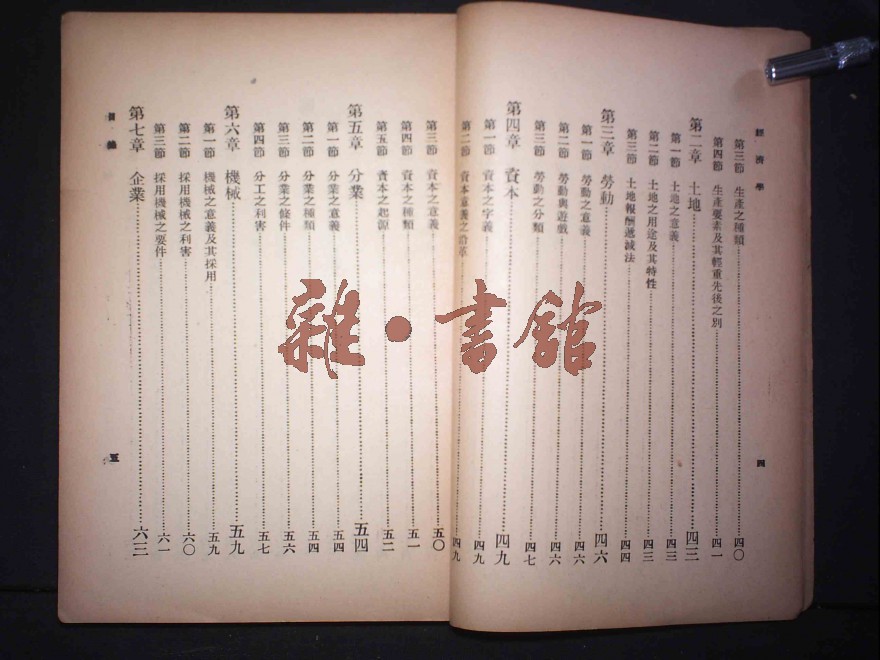 經濟學
第三節 生產之種類 四〇
第四節 生產要素及其輕重先後之別 四一
第二章 土地 四三
第一節 土地之意義 四三
第二節 土地之用途及其特性 四三
第三節 土地報酬遞減法 四四
第三章 勞動 四六
第一節 勞動之意義 四六
第二節 勞動與遊戲 四六
第三節 勞動之分類 四七
第四章 資本 四九
第一節 資本之字義 四九
第二節 資本意義之沿革 四九
四
第三節 資本之意義 五〇
第四節 資本之種類 五一
第五節 資本之起源 五二
第五章 分業 五四
第一節 分業之意義 五四
第二節 分業之種類 五四
第三節 分業之條件 五六
第四節 分工之利害 五七
第六章 機械 五九
第一節 機械之意義及其採用 五九
第二節 採用機械之利害 六〇
第三節 採用機械之要件 六一
第七章 企業 六三
目錄
五
雜·書館